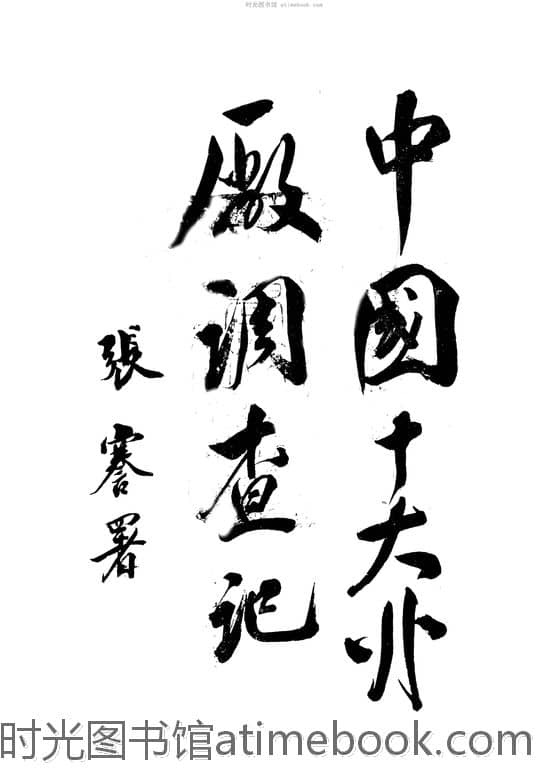 时光图书馆 atimebook.com
中國十大卝
厰調查記
張謇署
时光图书馆atimebook.com